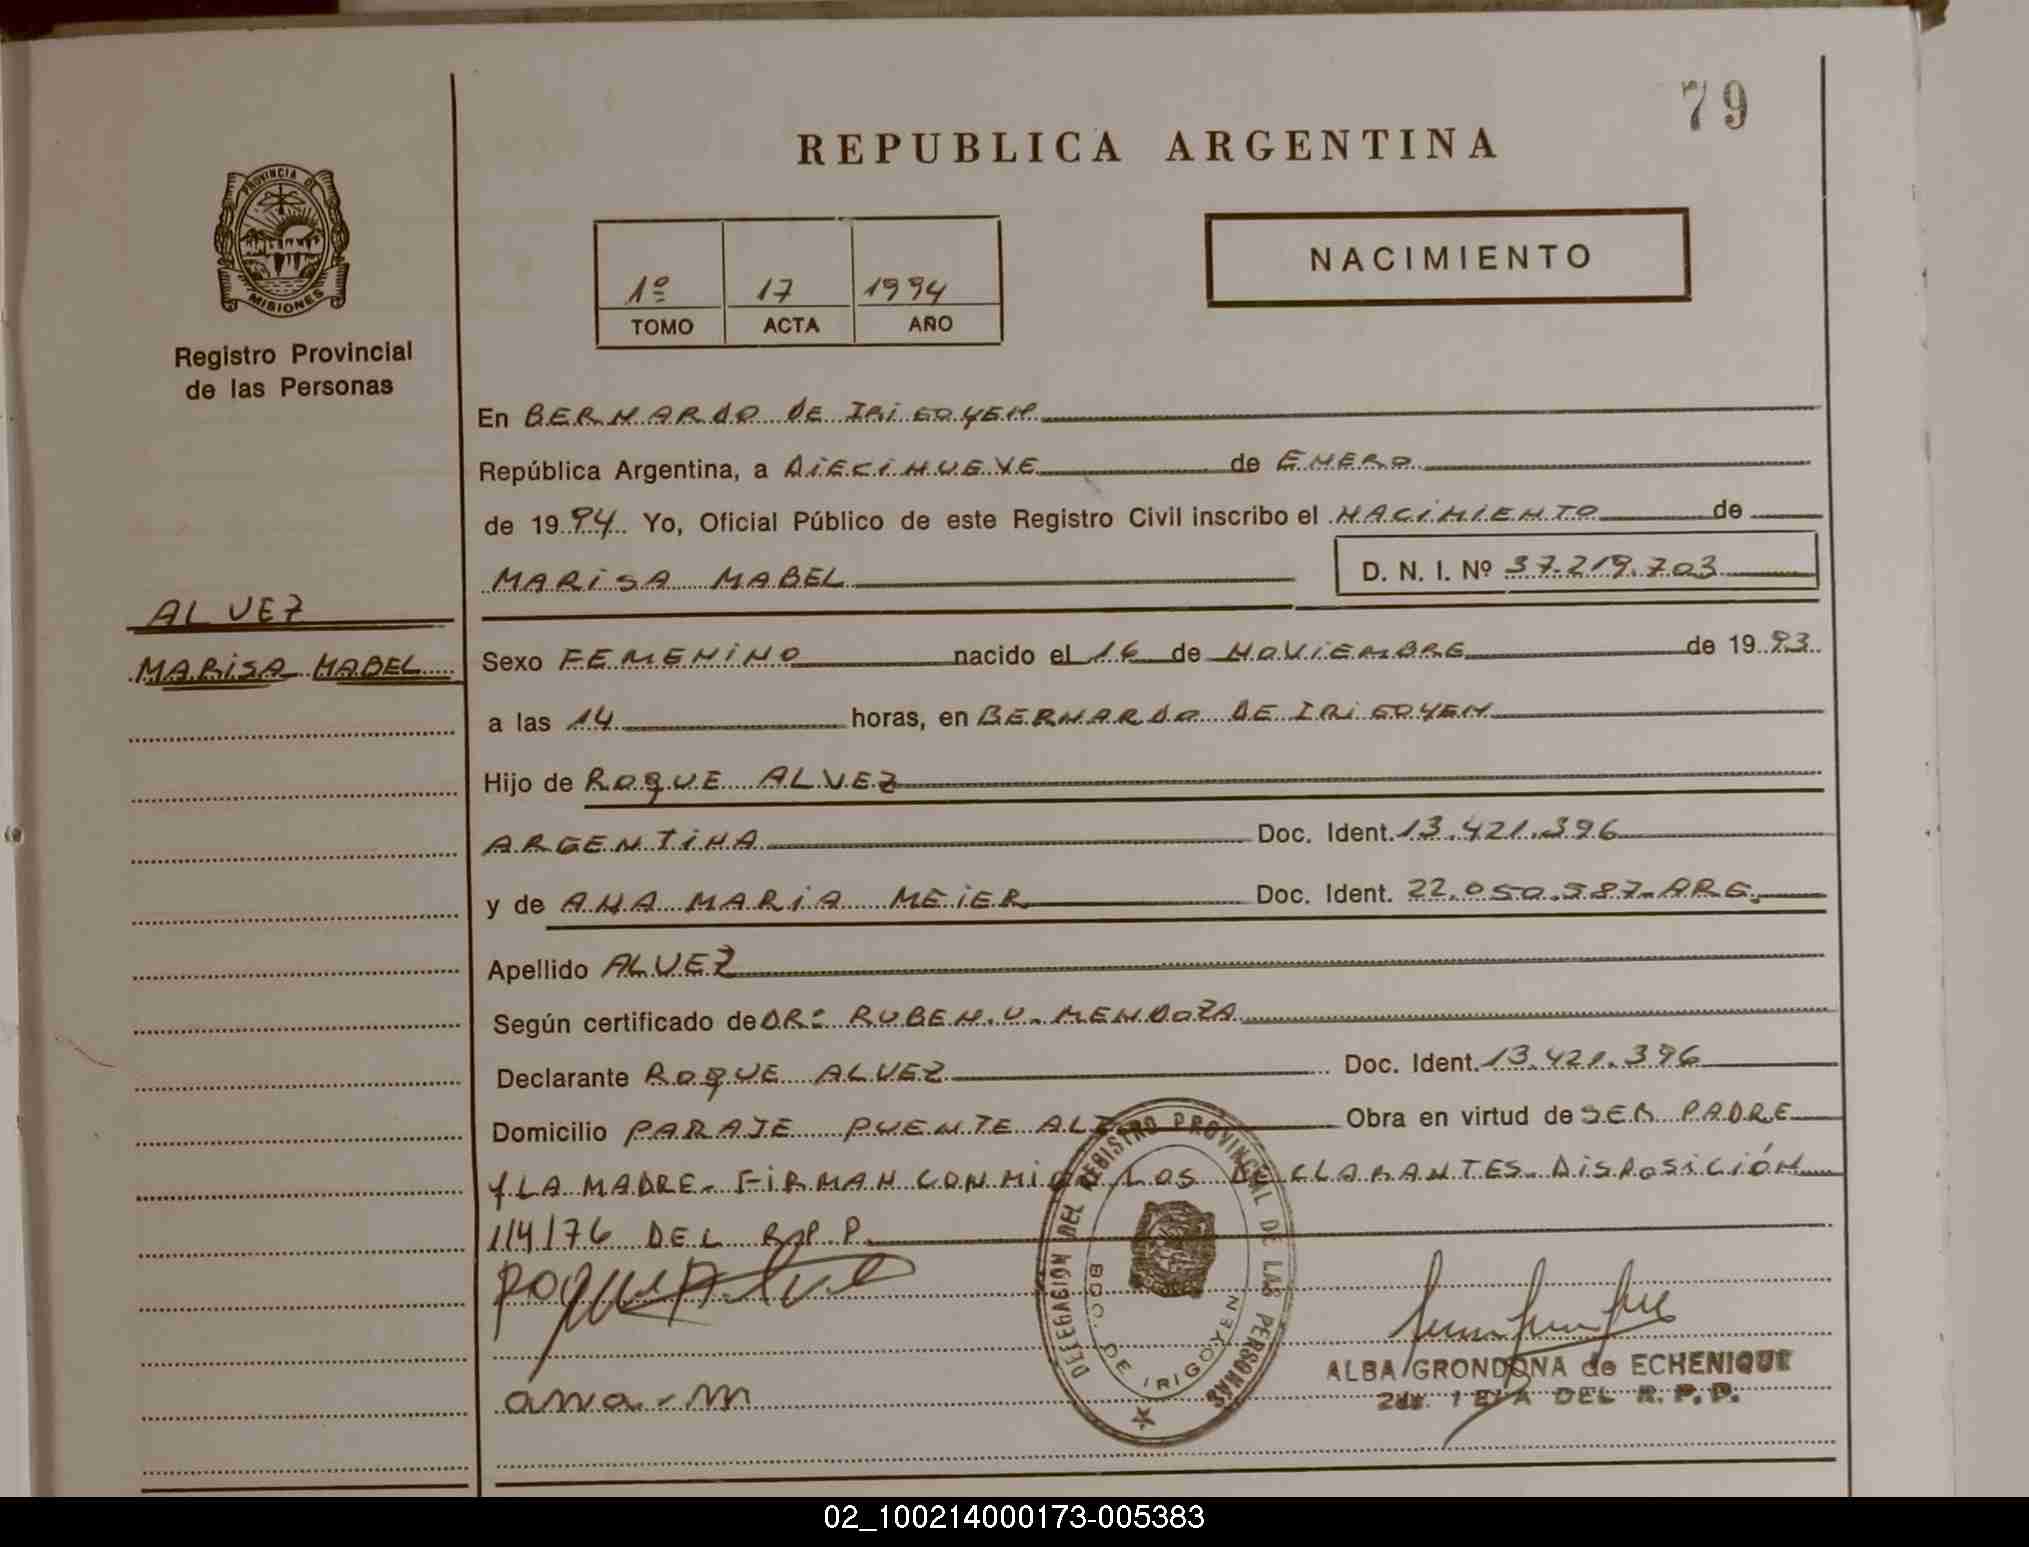 79
REPUBLICA ARGENTINA
PROVINCIA DE
MISIONES
Registro Provincial
de las Personas
NACIMIENTO
1º 17 1994
TOMO ACTA AÑO
En BERNARDO DE IRIGOYEN
República Argentina, a DIECINUEVE de ENERO
de 1994 Yo, Oficial Público de este Registro Civil inscribo el NACIMIENTO de
MARISA MABEL D. N. I. Nº 37.219.703
ALVEZ
MARISA MABEL
Sexo FEMENINO nacido el 16 de NOVIEMBRE de 1993
a las 14 horas, en BERNARDO DE IRIGOYEN
Hijo de ROQUE ALVEZ
ARGENTINA Doc. Ident. 13.421.396
y de ANA MARIA MEIER Doc. Ident. 22.050.587-ARG.
Apellido ALVEZ
Según certificado de DR: RUBEN.U. MENDOZA
Declarante ROQUE ALVEZ Doc. Ident. 13.421.396
Domicilio PARAJE PUENTE ALTO Obra en virtud de SER PADRE
Y LA MADRE- FIRMAN CONMIGO LOS DECLARANTES- DISPOSICIÓN
114/76 DEL R.P.P.
Roque Alve
ana-m
DELEGACION DEL REGISTRO PROVINCIAL DE LAS PERSONAS
BDO. DE IRIGOYEN
ALBA GRONDONA de ECHENIQUE
DEL R.P.P.
02_100214000173-005383